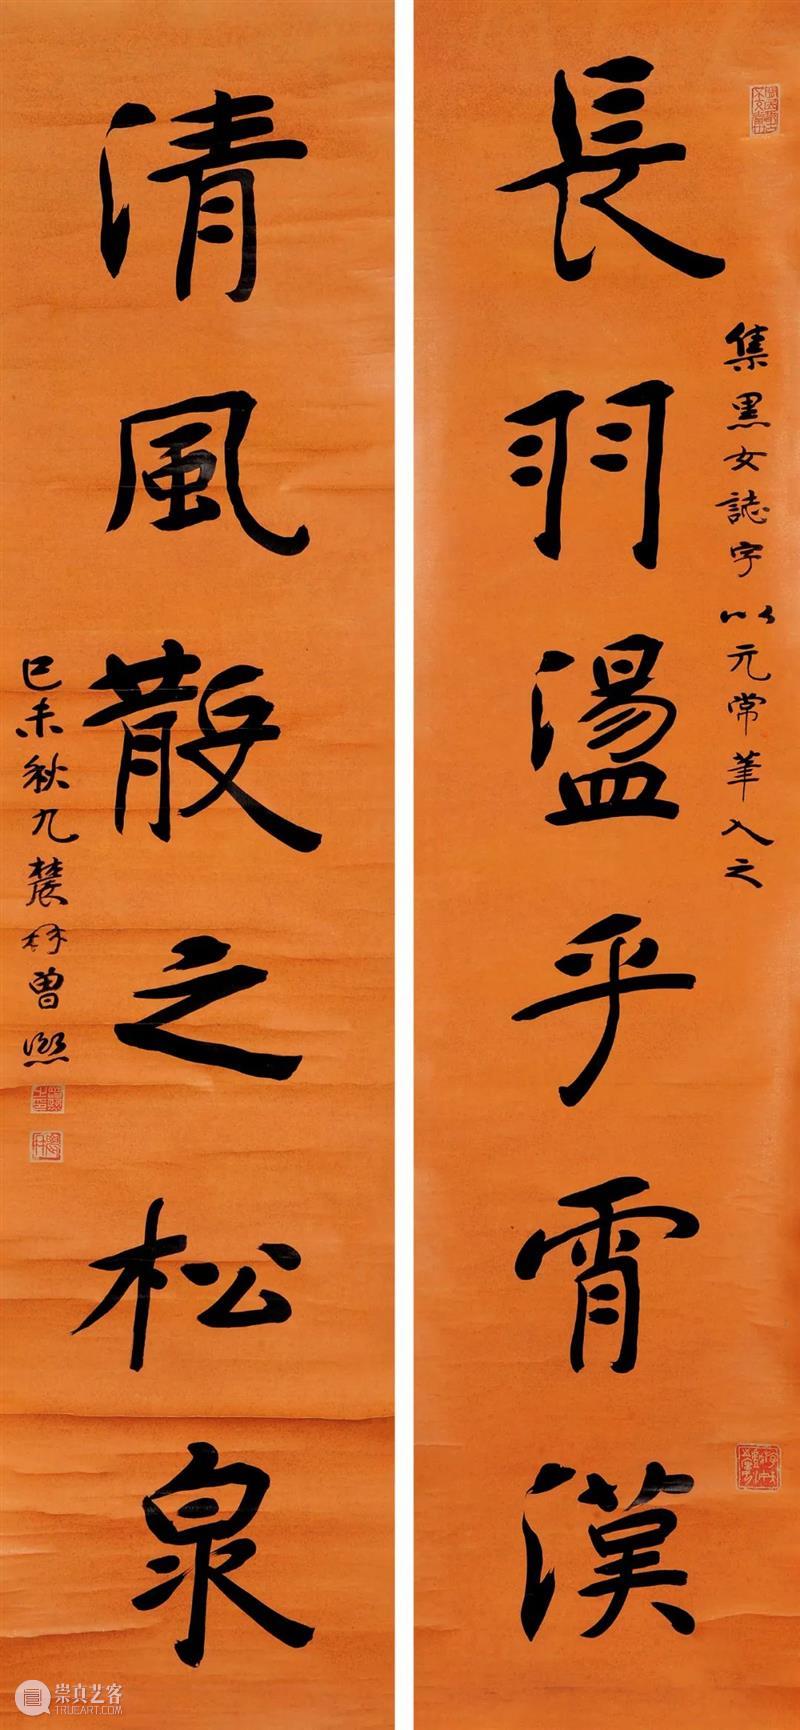 長羽盪乎霄漢
集黑女誌字以元常筆入之
清風散之松泉
己未秋九農髯曾熙
崇真艺客
TRUEART.COM